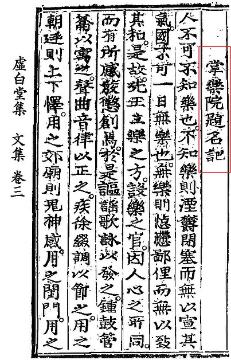 掌樂院題名記
人不可不知樂也不知樂則湮鬱閉塞而無以宣其
氣國不可一日無樂也無樂則鄙俚而無以致
其和是故先王立樂之方設樂之官因人心之所同
而有所感發懲創焉於是謳歌詠以發之鍾鼓管
籥以寫之聲曲音律以正之疾徐綴調以節之用之
朝廷則上下懌用之郊廟則鬼神感用之閨門用之
虛白堂集 文集 卷三